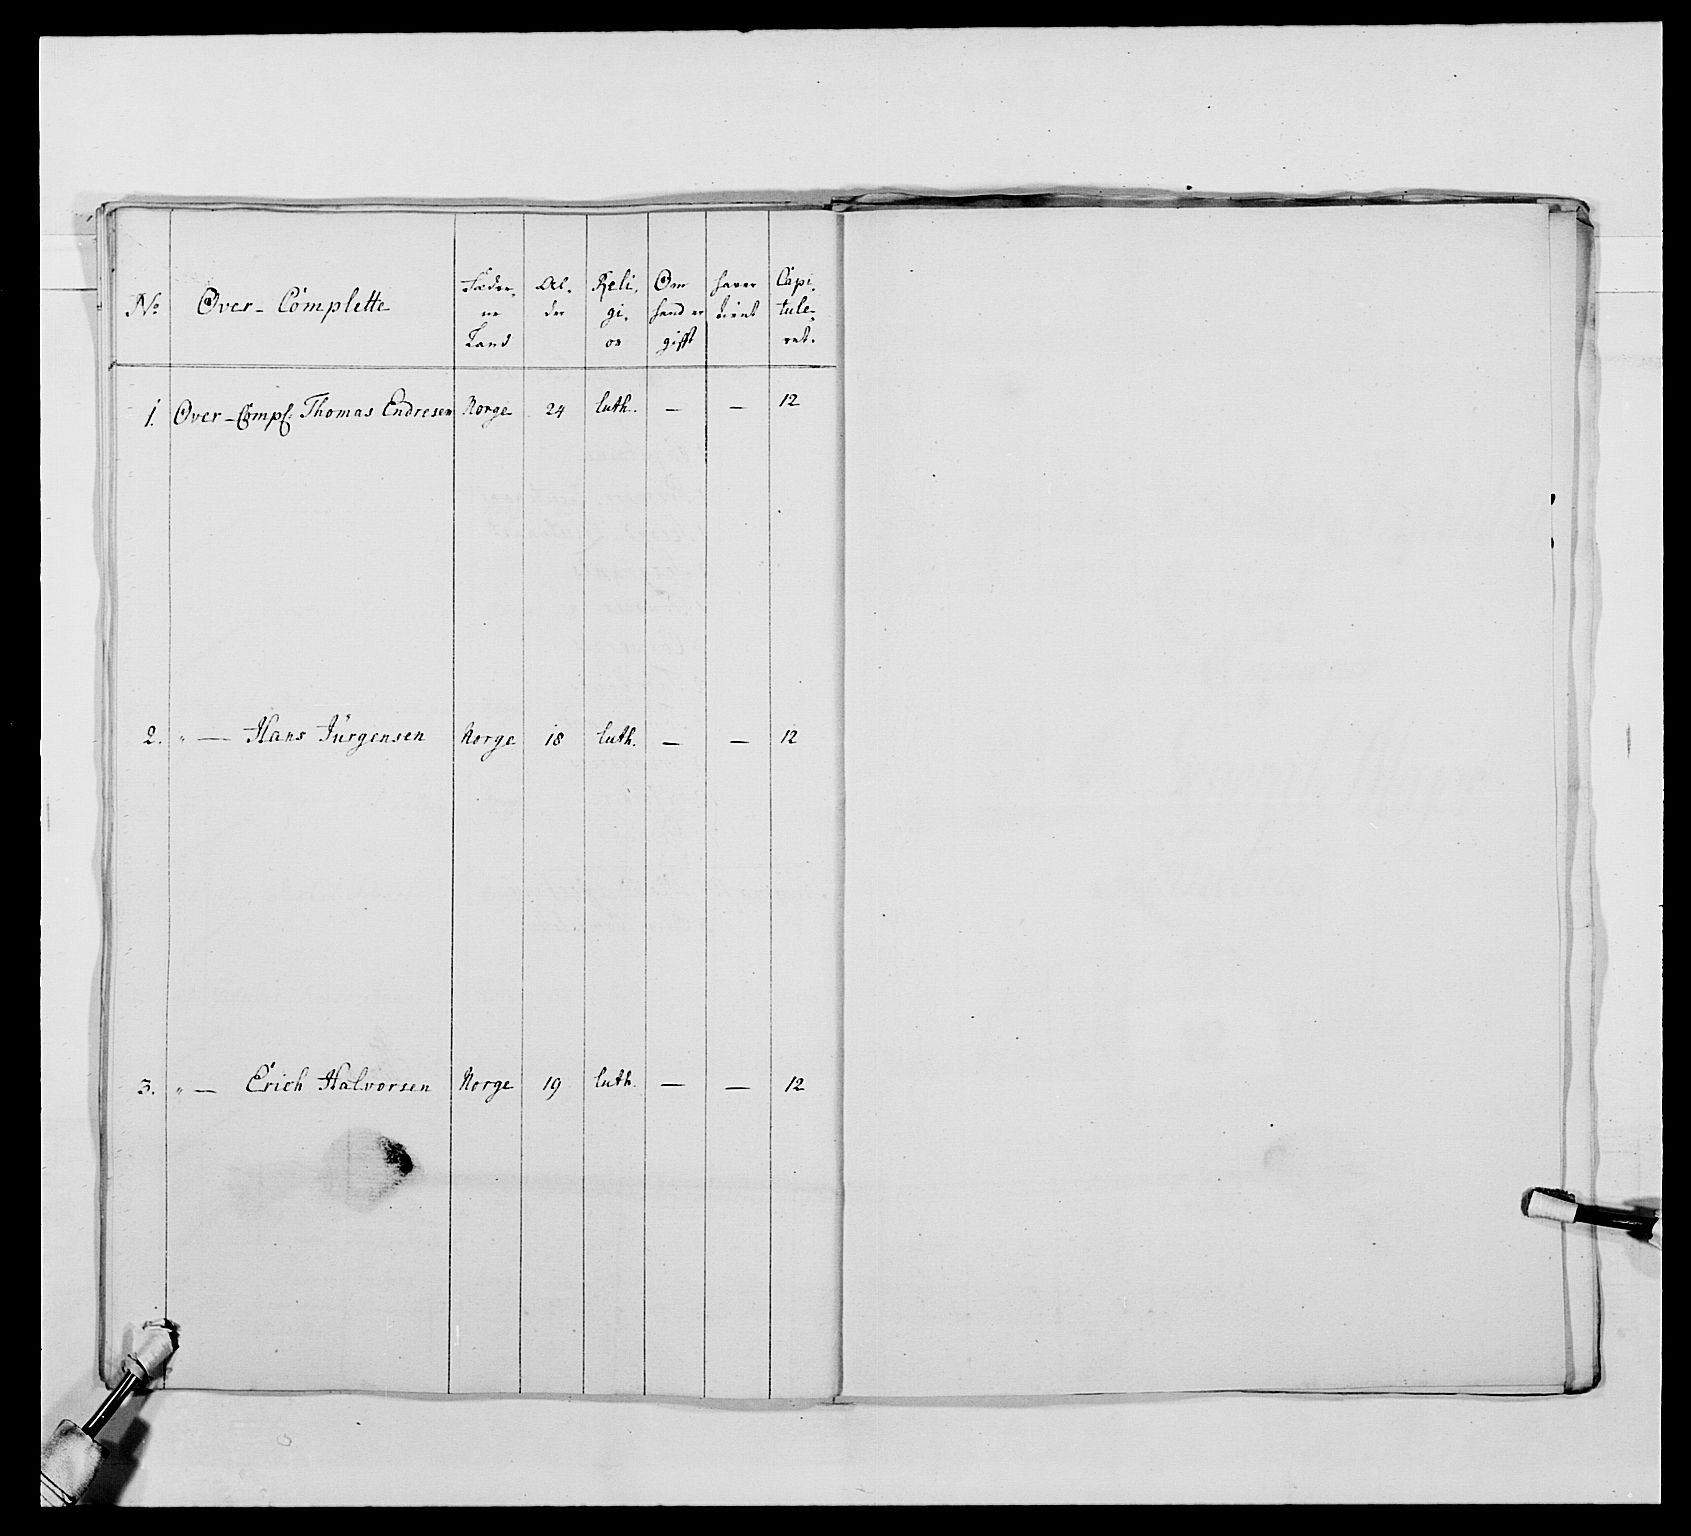 No Over-Complette Fæder-ne Land Al-der Reli-gi-on Om hand er gifft haver tient Capi-tule-ret.
1. Over-Compl: Thomas Endresen Norge 24 luth. — — 12
2. " — Hans Jürgensen Norge 18 luth. — — 12
3. " — Erich Halvorsen Norge 19 luth. — — 12